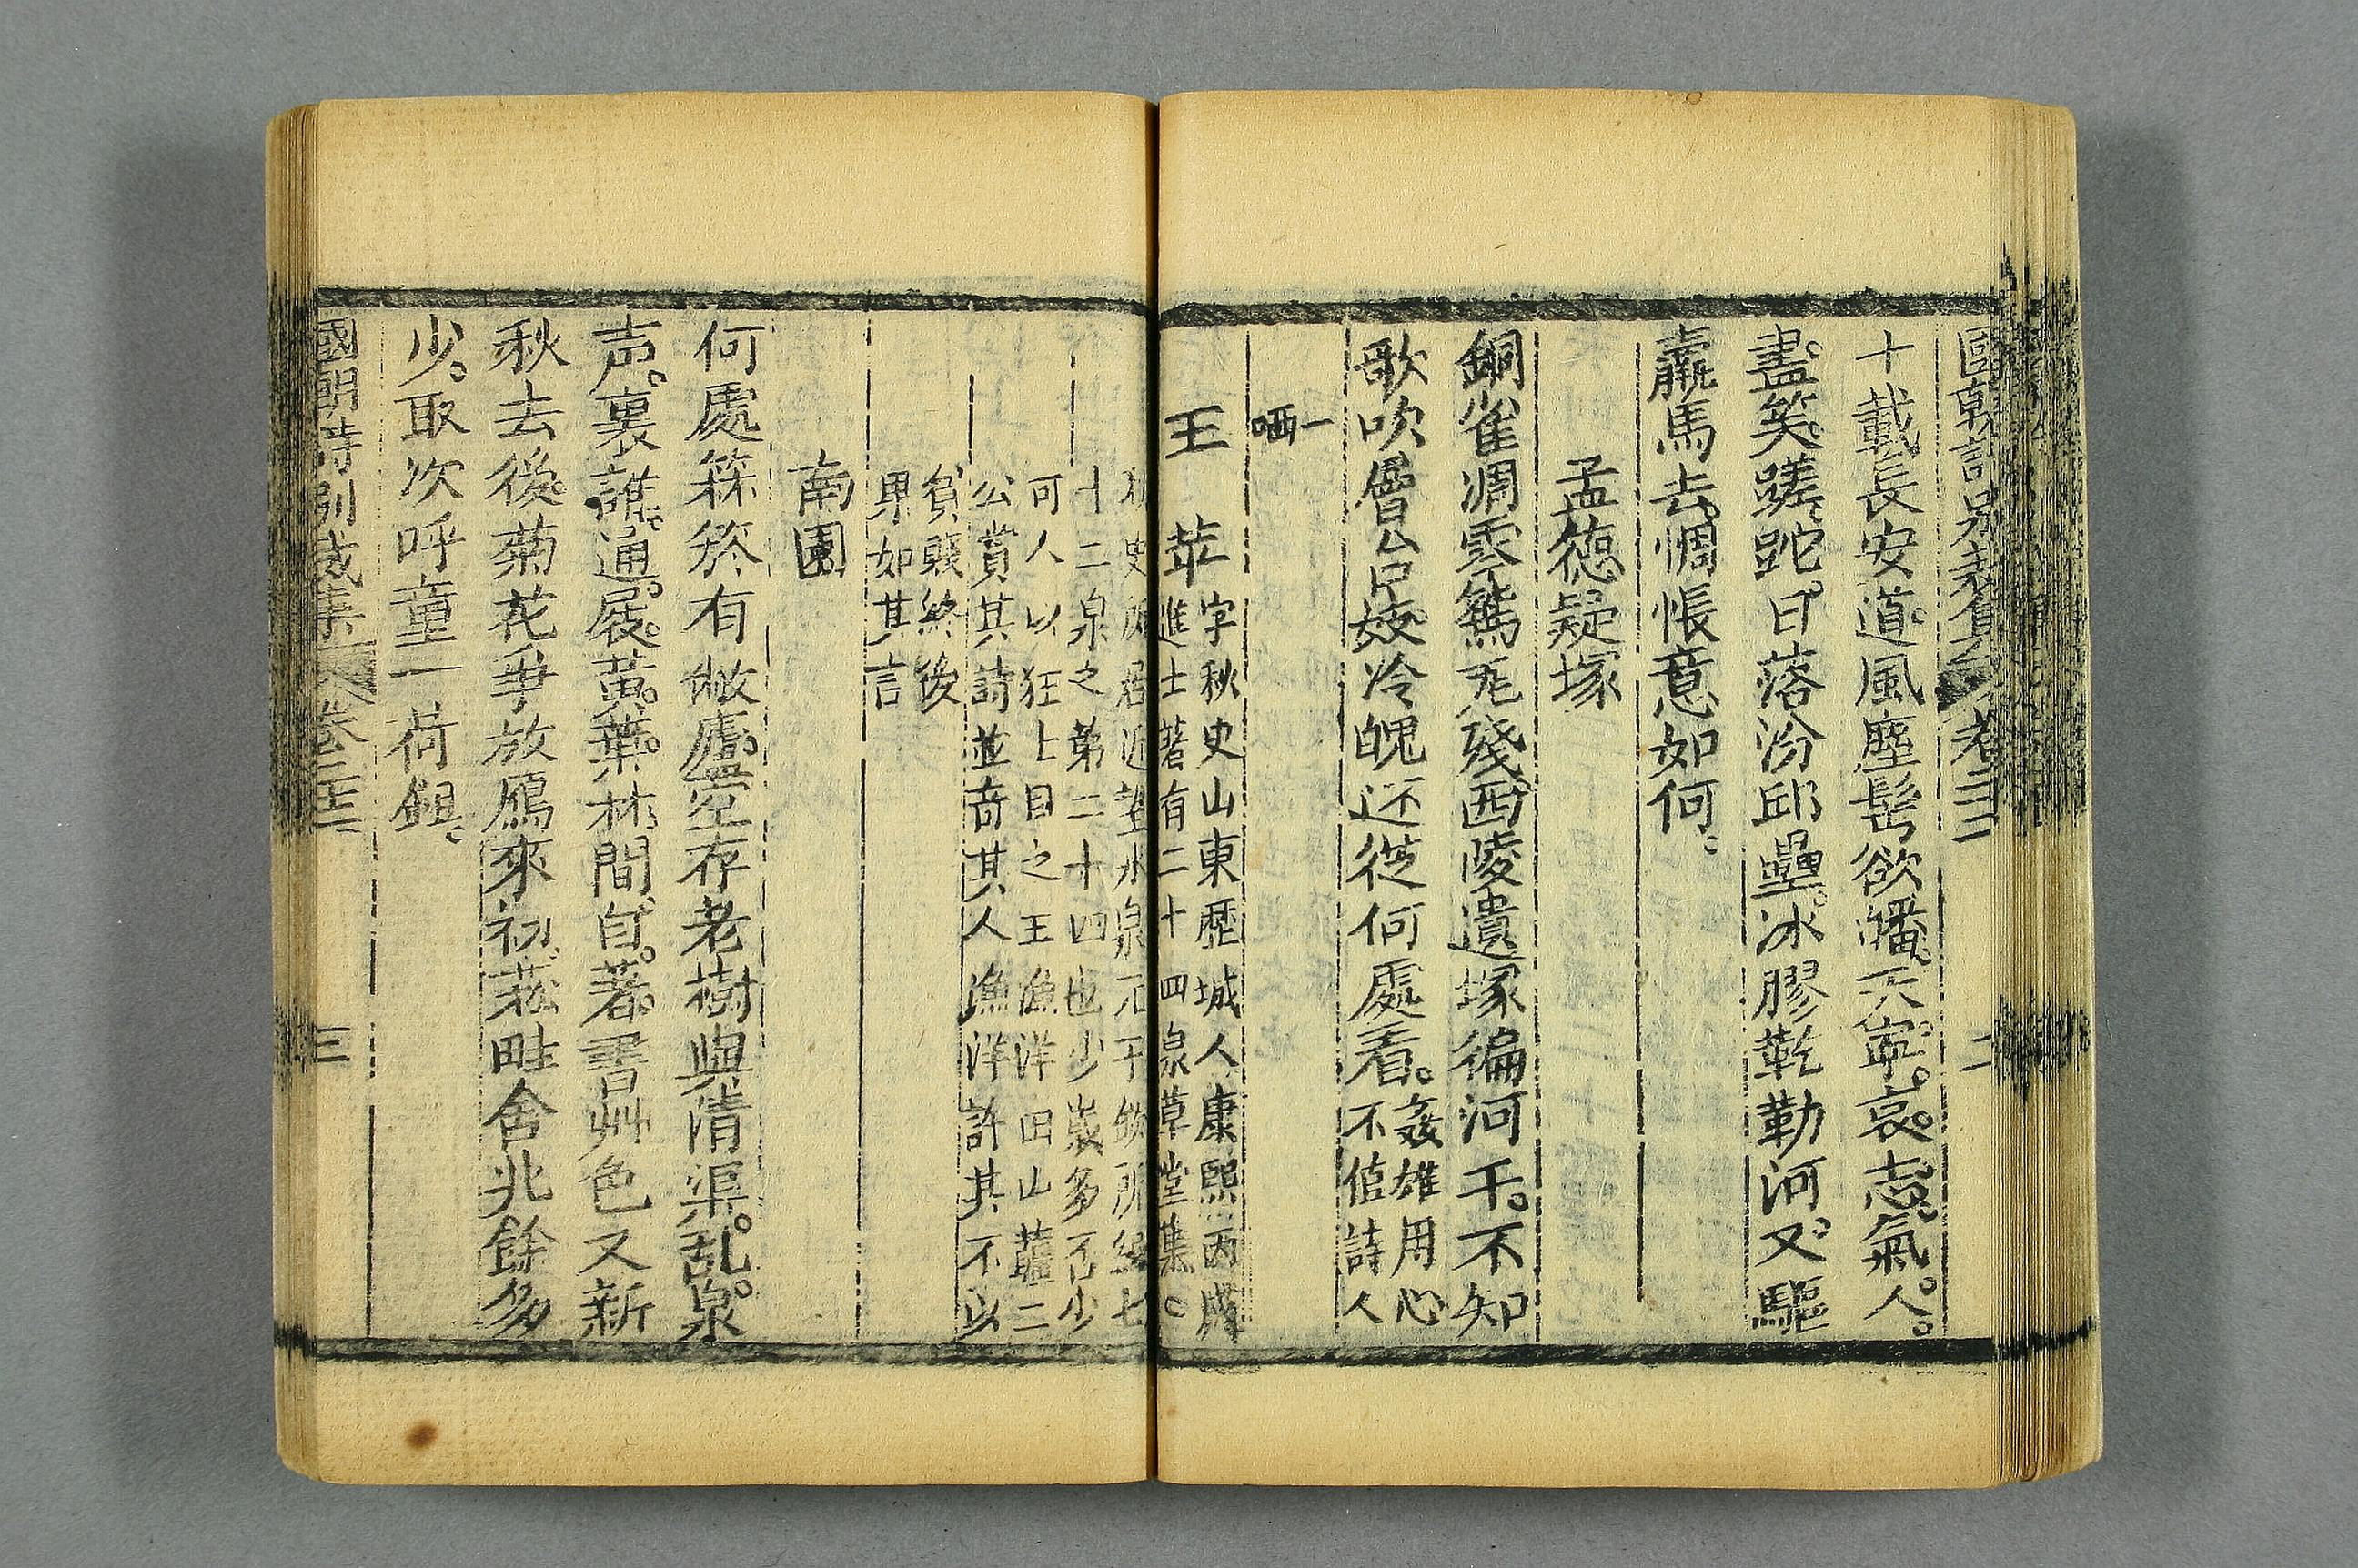 國朝詩別裁集 卷二三 二
十載長安道風塵髩欲皤天寧哀志氣人
盡笑蹉跎日落汾邱壘冰膠乾勒河又驅
羸馬去惆悵意如何
孟德疑塚
銅雀凋零篤死殘西陵遺塚徧河干不知
歌吹層台妓冷魄还從何處看
奸雄用心
不值詩人
一
哂
王苹
字秋史山東歷城人康熙丙戌
進士著有二十四泉草堂集
秋史所居近望水泉元于欽所紀七
十二泉之第二十四也少岁多否少
可人以狂士目之王漁洋田山薑二
公賞其詩並奇其人漁洋許其不以
貧賤終後
果如其言
南園
何處箖箊有敝廬空存老樹與清渠乱泉
声裏誰通屐黄葉林間自著書艸色又新
秋去後菊花爭放鴈來初菘畦舍北餘多
少取次呼童一荷鉏
國朝詩別裁集 卷二三 三